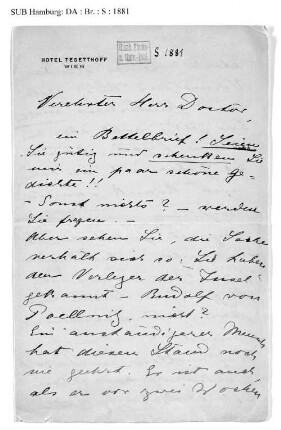 SUB Hamburg: DA : Br. : S : 1881
S 1881
HOTEL TEGETTHOFF
WIEN
Verehrter Herr Doctor,
ein Bettelbrief! Seien
Sie gütig und schenken Sie
mir ein paar schöne Ge-
dichte!!
– Sonst nichts? – werden
Sie fragen. –
Aber sehen Sie, die Sache
verhält sich so: Sie haben
den Verleger der Insel
gekannt – Rudolf von
Poellnitz, nicht?
Ein anständigerer Mensch
hat diesen Stand noch
nie geehrt. Er ist auch
als er vor zwei Wochen